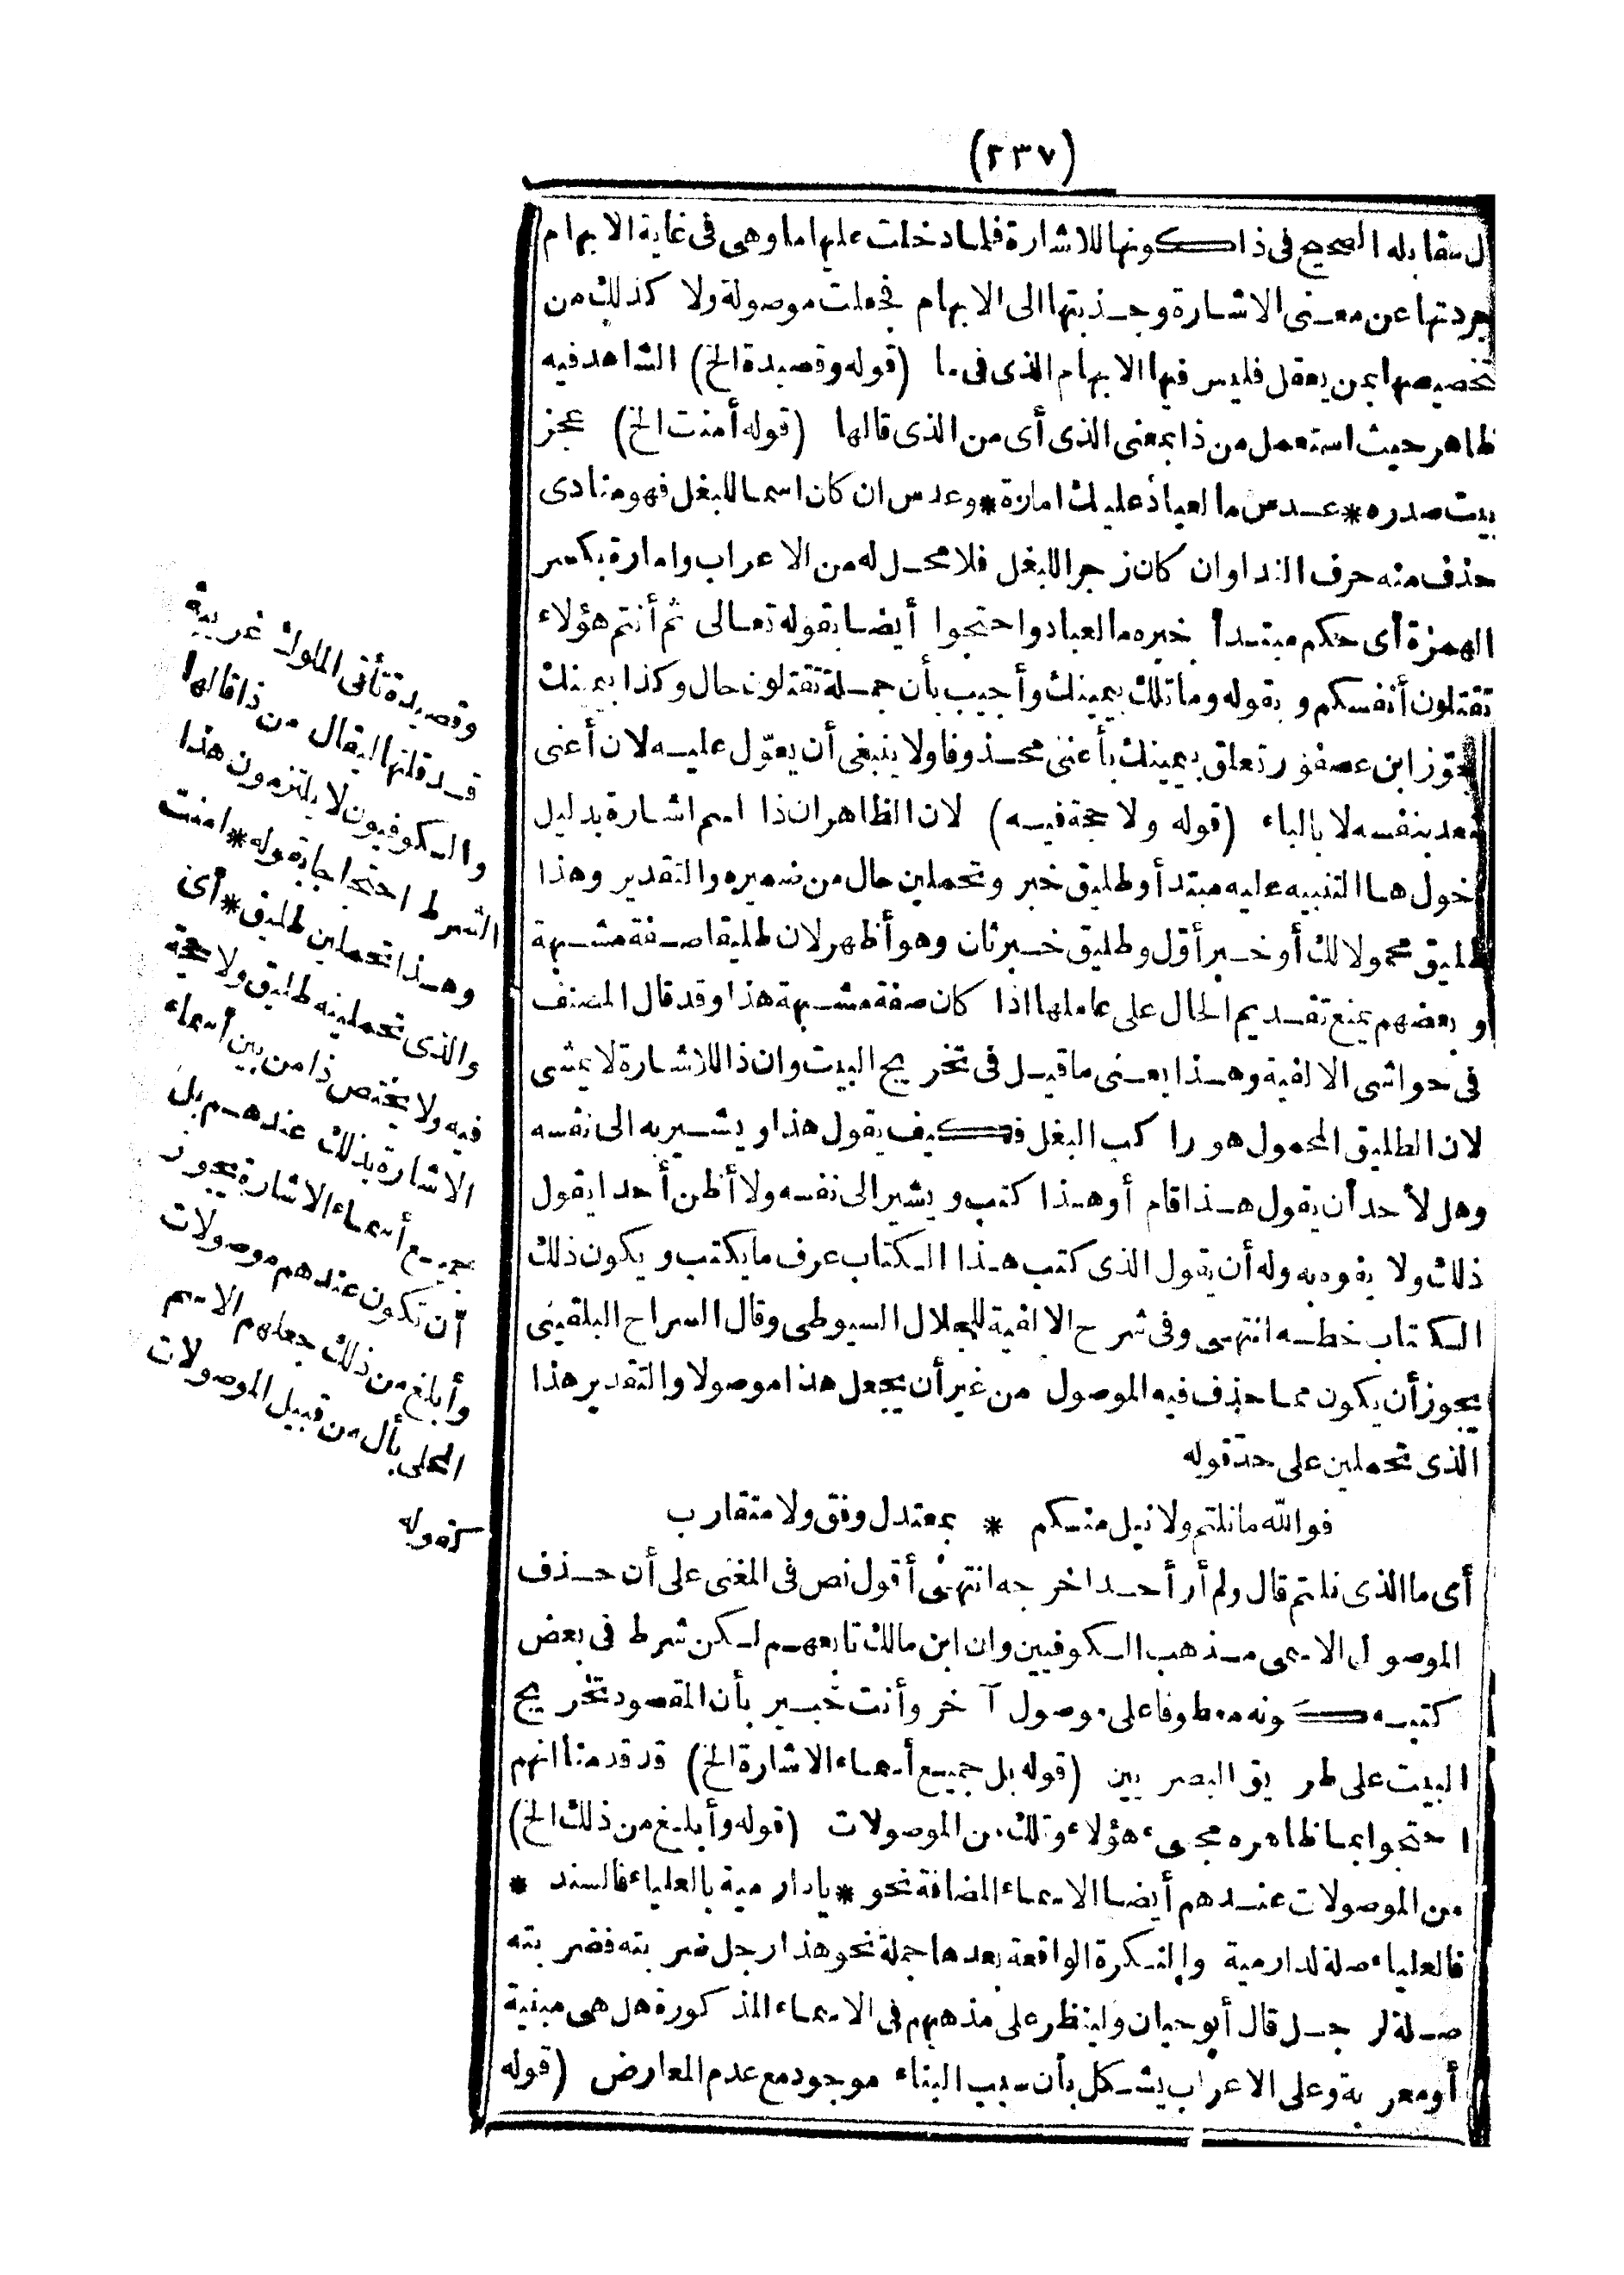 (٢٣٧)
ل مقابله الصحيح فى ذا كونها للاشارة فلما دخلت عليها ما وهى فى غاية الابهام
جردتها عن معنى الاشارة وجذبتها الى الابهام فجعلت موصولة ولا كذلك من
تخصيصها بمن يعقل فليس فيها الابهام الذى فى ما (قوله وقصيدة الخ) الشاهد فيه
ظاهر حيث استعمل من ذا بمعنى الذى أى من الذى قالها (قوله أمنت الخ) عجز
بيت صدره * عدس ما لعباد عليك امارة * وعدس ان كان اسما للبغل فهو منادى
حذف منه حرف الندا وان كان زجرا للبغل فلا محل له من الاعراب وامارة بكسر
الهمزة أى حكم مبتدأ خبره ما لعباد واحتجوا أيضا بقوله تعالى ثم أنتم هؤلاء
تقتلون أنفسكم و بقوله وما تلك بيمينك وأجيب بأن جملة تقتلون حال وكذا بيمينك
جوّز ابن عصفور تعلق بيمينك بأعنى محذوفا ولا ينبغى أن يعوّل عليه لان أعنى
تعد بنفسه لا بالباء (قوله ولا حجة فيه) لان الظاهر ان ذا اسم اشارة بدليل
دخول ها التنبيه عليه مبتدأ وطليق خبر وتحملين حال من ضميره والتقدير وهذا
طليق محمولا لك أو خبر أوّل وطليق خبر ثان وهو أظهر لان طليقا صفة مشبهة
و بعضهم يمنع تقديم الحال على عاملها اذا كان صفة مشبهة هذا وقد قال المصنف
فى حواشى الالفية وهذا يعنى ما قيل فى تخريج البيت وان ذا للاشارة لا يمشى
لان الطليق المحمول هو راكب البغل فكيف يقول هذا و يشير به الى نفسه
وهل لأحد أن يقول هذا قام أو هذا كتب و يشير الى نفسه ولا أظن أحدا يقول
ذلك ولا يفوه به وله أن يقول الذى كتب هذا الكتاب عرف ما يكتب و يكون ذلك
الكتاب خطه انتهى وفى شرح الالفية للجلال السيوطى وقال السراج البلقينى
يجوز أن يكون مما حذف فيه الموصول من غير أن يجعل هذا موصولا والتقدير هذا
الذى تحملين على حدّ قوله
فو الله ما نلتم ولا نيل منكم * بمعتدل وفق ولا متقارب
أى ما الذى نلتم قال ولم أر أحدا خرجه انتهى أقول نص فى المغنى على أن حذف
الموصول الاسمى مذهب الكوفيين وان ابن مالك تابعهم لكن شرط فى بعض
كتبه كونه معطوفا على موصول آخر وأنت خبير بأن المقصود تخريج
البيت على طريق البصريين (قوله بل جميع أسماء الاشارة الخ) قد قدمنا انهم
احتجوا بما ظاهره مجىء هؤلاء وتلك من الموصولات (قوله وأبلغ من ذلك الخ)
من الموصولات عندهم أيضا الاسماء المضافة نحو * يا دار مية بالعلياء فالسند *
فالعلياء صلة لدار مية والنكرة الواقعة بعدها جملة نحو هذا رجل ضربته فضربته
صلة لرجل قال أبو حيان ولينظر على مذهبهم فى الاسماء المذكورة هل هى مبنية
أو معربة وعلى الاعراب يشكل بأن سبب البناء موجود مع عدم المعارض (قوله
وقصيدة تأتى الملوك غريبة
قد قلتها ليقال من ذا قالها
والكوفيون لا يلتزمون هذا
الشرط احتجاجا بقوله * امنت
وهذا تحملين طليق * أى
والذى تحملينه طليق ولا حجة
فيه ولا يختص ذا من بين أسماء
الاشارة بذلك عندهم بل
جميع أسماء الاشارة يجوز
أن تكون عندهم موصولات
وأبلغ من ذلك جعلهم الاسم
المحلى بأل من قبيل الموصولات
كقوله